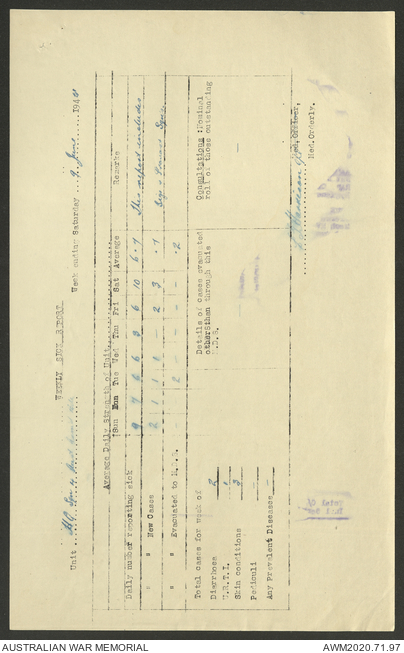 WEEKLY SICK REPORT
Unit .. HQ Week ending Saturday ... 9 June ... 194
Average Daily Strength of Unit
Sun Mon Tue Wed Thu Fri Sat Average Remarks
Daily number reporting sick 9 7 6 6 3 6 10 6.7 This report includes
" " New Cases 2 1 1 1 - 2 3 .7
" " Evacuated to M.D.S. - - 2 - - - - .2
Total cases for week of
Diarrhoea
U.R.T.I.
Skin conditions 3
Pediculi —
Any Prevalent Diseases —
Details of cases evacuated
other than through this
M.D.S.
—
Consultations :Nominal
roll of those outstanding
—
Med.Officer,
Med.Orderly.
AUSTRALIAN WAR MEMORIAL
AWM2020.71.97